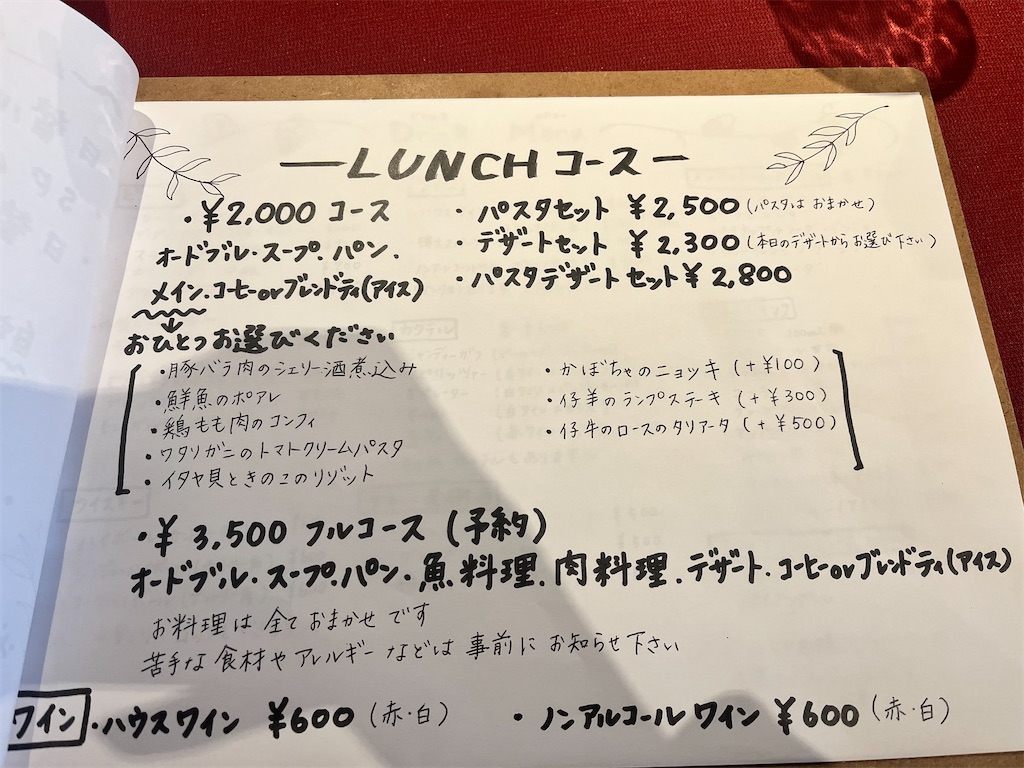 LUNCH コース
・¥2,000 コース
オードブル・スープ・パン・
メイン・コーヒーorブレンドティ(アイス)
おひとつお選びください
・パスタセット ¥2,500(パスタは おまかせ)
・デザートセット ¥2,300(本日のデザートからお選び下さい)
・パスタデザートセット¥2,800
・豚バラ肉のシェリー酒煮込み
・鮮魚のポアレ
・鶏もも肉のコンフィ
・ワタリガニのトマトクリームパスタ
・イタヤ貝ときのこのリゾット
・かぼちゃのニョッキ(+¥100)
・仔羊のランプステーキ(+¥300)
・仔牛のロースのタリアータ(+¥500)
・¥3,500 フルコース(予約)
オードブル・スープ・パン・魚料理・肉料理・デザート・コーヒーorブレンドティ(アイス)
お料理は 全ておまかせです
苦手な食材やアレルギーなどは 事前に お知らせ下さい
ワイン ・ハウスワイン ¥600(赤・白) ・ノンアルコールワイン ¥600(赤・白)